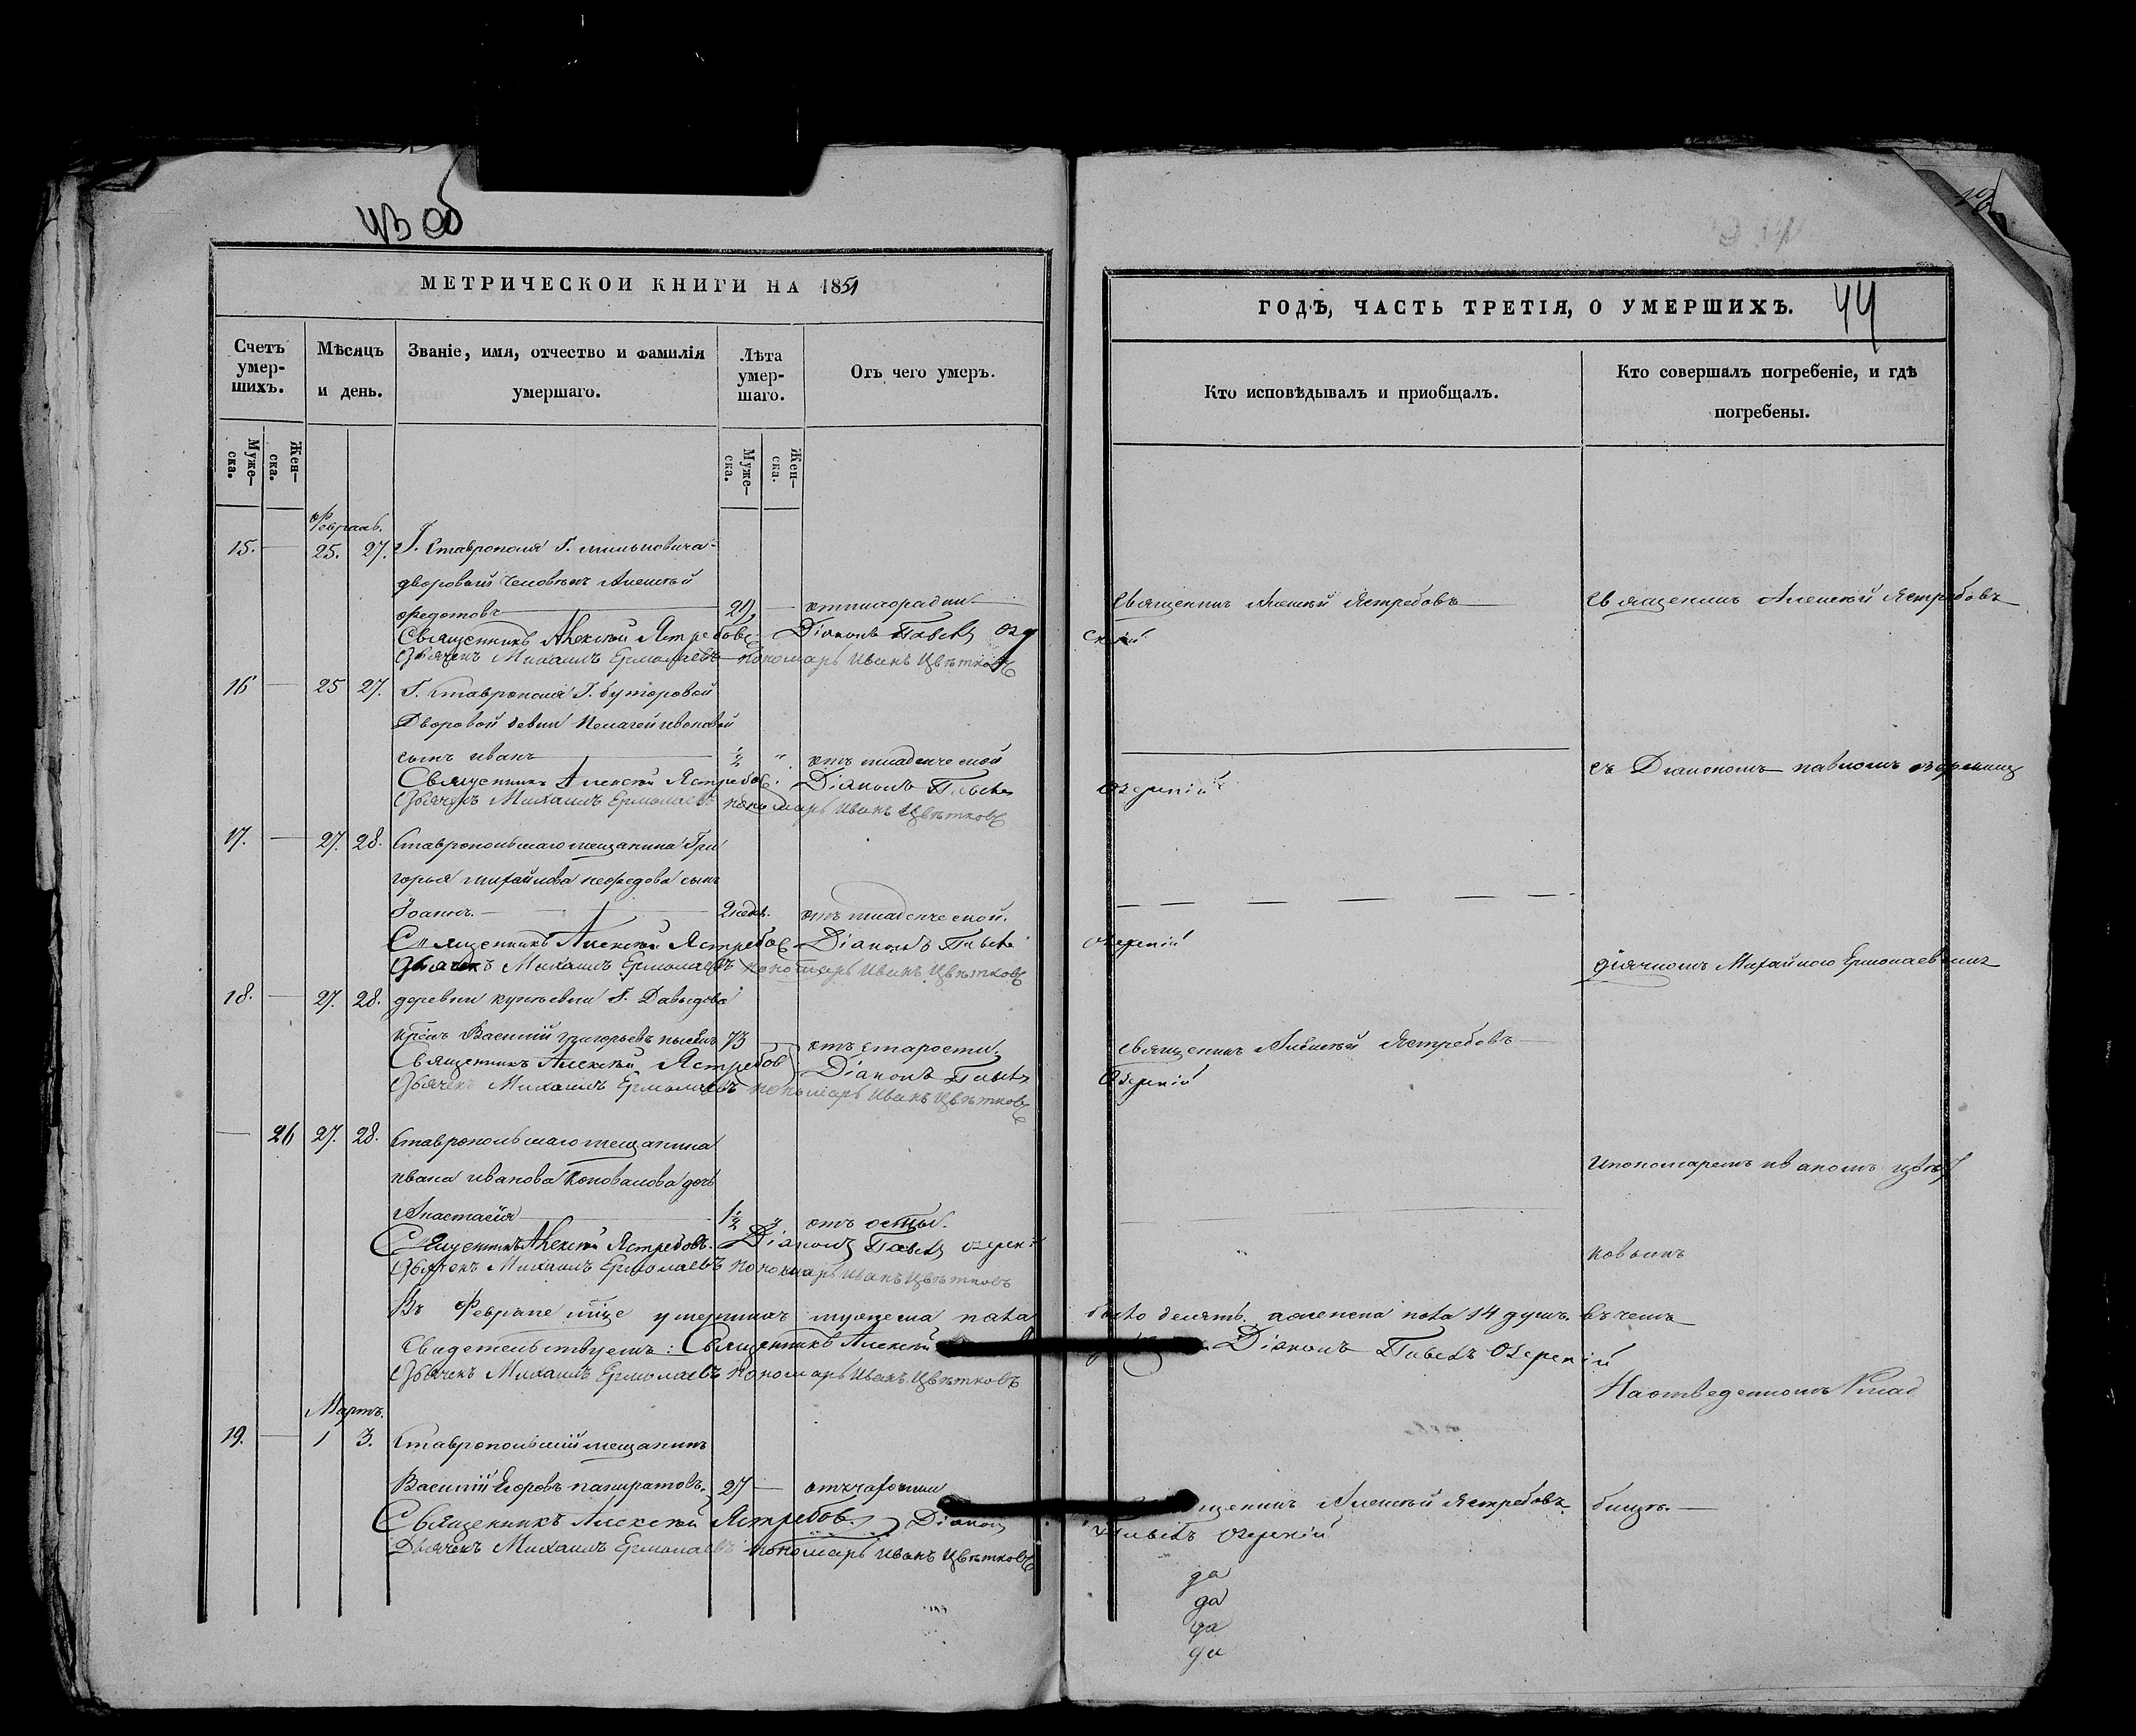 43 об
МЕТРИЧЕСКОЙ КНИГИ НА 1851
Счетъ умер-шихъ.
Мѣсяцъ и день.
Званіе, имя, отчество и фамилія умершаго.
Лѣта умер-шаго.
Отъ чего умеръ.
Муже-ска.
Жен-ска.
Муже-ска.
Жен-ска.
Февраль.
15. — 25. 27. Г. Ставрополя Г.
дворовый человѣкъ Алексѣй
Федотовъ —
Священникъ Алексѣй Ястребовъ Діаконъ Павелъ Озер
Дьячекъ Михаилъ Ермолаевъ пономарь Иванъ Цвѣтковъ
16 — 25 27. Г. Ставрополя Г. буторовой
Дворовой девки Пелагеи ивановой
сынъ иванъ — 1/2 " отъ младенческой
Священникъ Алексѣй Ястребовъ. Діаконъ Павелъ
Дьячекъ Михаилъ Ермолаевъ пономарь Иванъ Цвѣтковъ
17. — 27. 28. Ставропольскаго мещанина Гри
горья михайлова нефедова сынъ
Іоаннъ. — 2 недѣл. отъ младенческой.
Священникъ Алексѣй Ястребовъ Діаконъ Павелъ
Дьячекъ Михаилъ Ермолаевъ пономарь Иванъ Цвѣтковъ
18. — 27. 28. деревни кунѣевки Г. Давыдова
крѣнъ Василій григорьевъ 73 — отъ старости.
Священникъ Алексѣй Ястребовъ Діаконъ Павелъ
Дьячекъ Михаилъ Ермолаевъ пономарь Иванъ Цвѣтковъ
— 26 27. 28. Ставропольскаго мещанина
ивана иванова коновалова дочь
Анастасія — 1 1/2 отъ оспы.
Священникъ Алексѣй Ястребовъ. Діаконъ Павелъ Озерск
Дьячекъ Михаилъ Ермолаевъ пономарь Иванъ Цвѣтковъ
Въ Февралѣ мѣце умершихъ мужеска пола
Свидетельствуемъ: Священникъ Алексѣй
Дьячекъ Михаилъ Ермолаевъ пономарь Иванъ Цвѣтковъ
Мартъ.
19. — 1 3. Ставропольскій мещанинъ
Василій Егоровъ панкратовъ. 27 — отъ чахотки
Священникъ Алексѣй Ястребовъ Діаконъ
Дьячекъ Михаилъ Ермолаевъ пономарь Иванъ Цвѣтковъ
ГОДЪ, ЧАСТЬ ТРЕТІЯ, О УМЕРШИХЪ.
44
Кто исповѣдывалъ и приобщалъ.
Кто совершалъ погребеніе, и гдѣ погребены.
Священникъ Алексѣй Ястребовъ — Священникъ Алексѣй Ястребовъ
скій
съ Діакономъ павломъ озерскимъ
Озерскій
Озерскій
дьячкомъ Михайлою Ермолаевымъ
священникъ Алексѣй Ястребовъ —
Озерскій
ипономаремъ иваномъ цвѣт
ковымъ
было десять, аженска пола 14 душъ. въ чемъ
Діаконъ Павелъ Озерскій
На отведенномъ Клад
Алексѣй Ястребовъ. бищѣ. —
Павелъ Озерскій
да
да
да
да